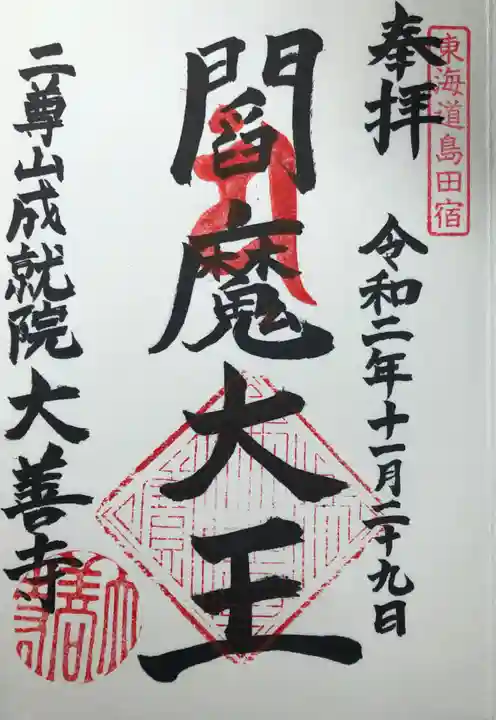 東海道島田宿
奉拝
令和二年十一月二十九日
閻魔大王
二尊山成就院大善寺
大善寺